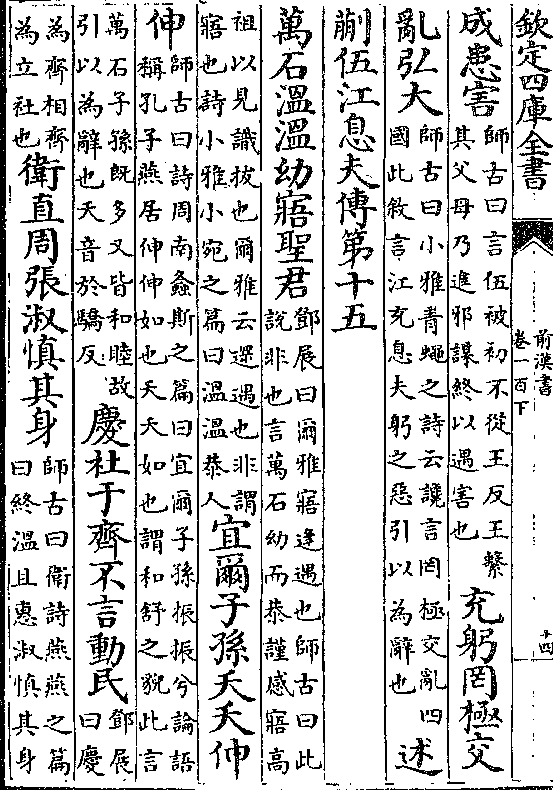 欽定四庫全書
前漢書
卷一百下
十四
成患害師古曰言伍被初不從王反王繫其父母乃進邪謀終以遇害也充躬罔極交
亂弘大師古曰小雅青蠅之詩云讒言罔極交亂四國此敘言江充息夫躬之惡引以為辭也述
蒯伍江息夫傳第十五
萬石溫溫幼寤聖君鄧展曰爾雅寤逢遇也師古曰此說非也言萬石幼而恭謹感寤高
祖以見識拔也爾雅云遻遇也非謂寤也詩小雅小宛之篇曰溫溫恭人宜爾子孫夭夭伸
伸師古曰詩周南螽斯之篇曰宜爾子孫振振兮論語稱孔子燕居伸伸如也夭夭如也謂和舒之貌此言
萬石子孫既多又皆和睦故引以為辭也夭音於驕反慶社于齊不言動民鄧展曰慶
為齊相齊為立社也衛直周張淑慎其身師古曰衛詩燕燕之篇曰終溫且惠淑慎其身